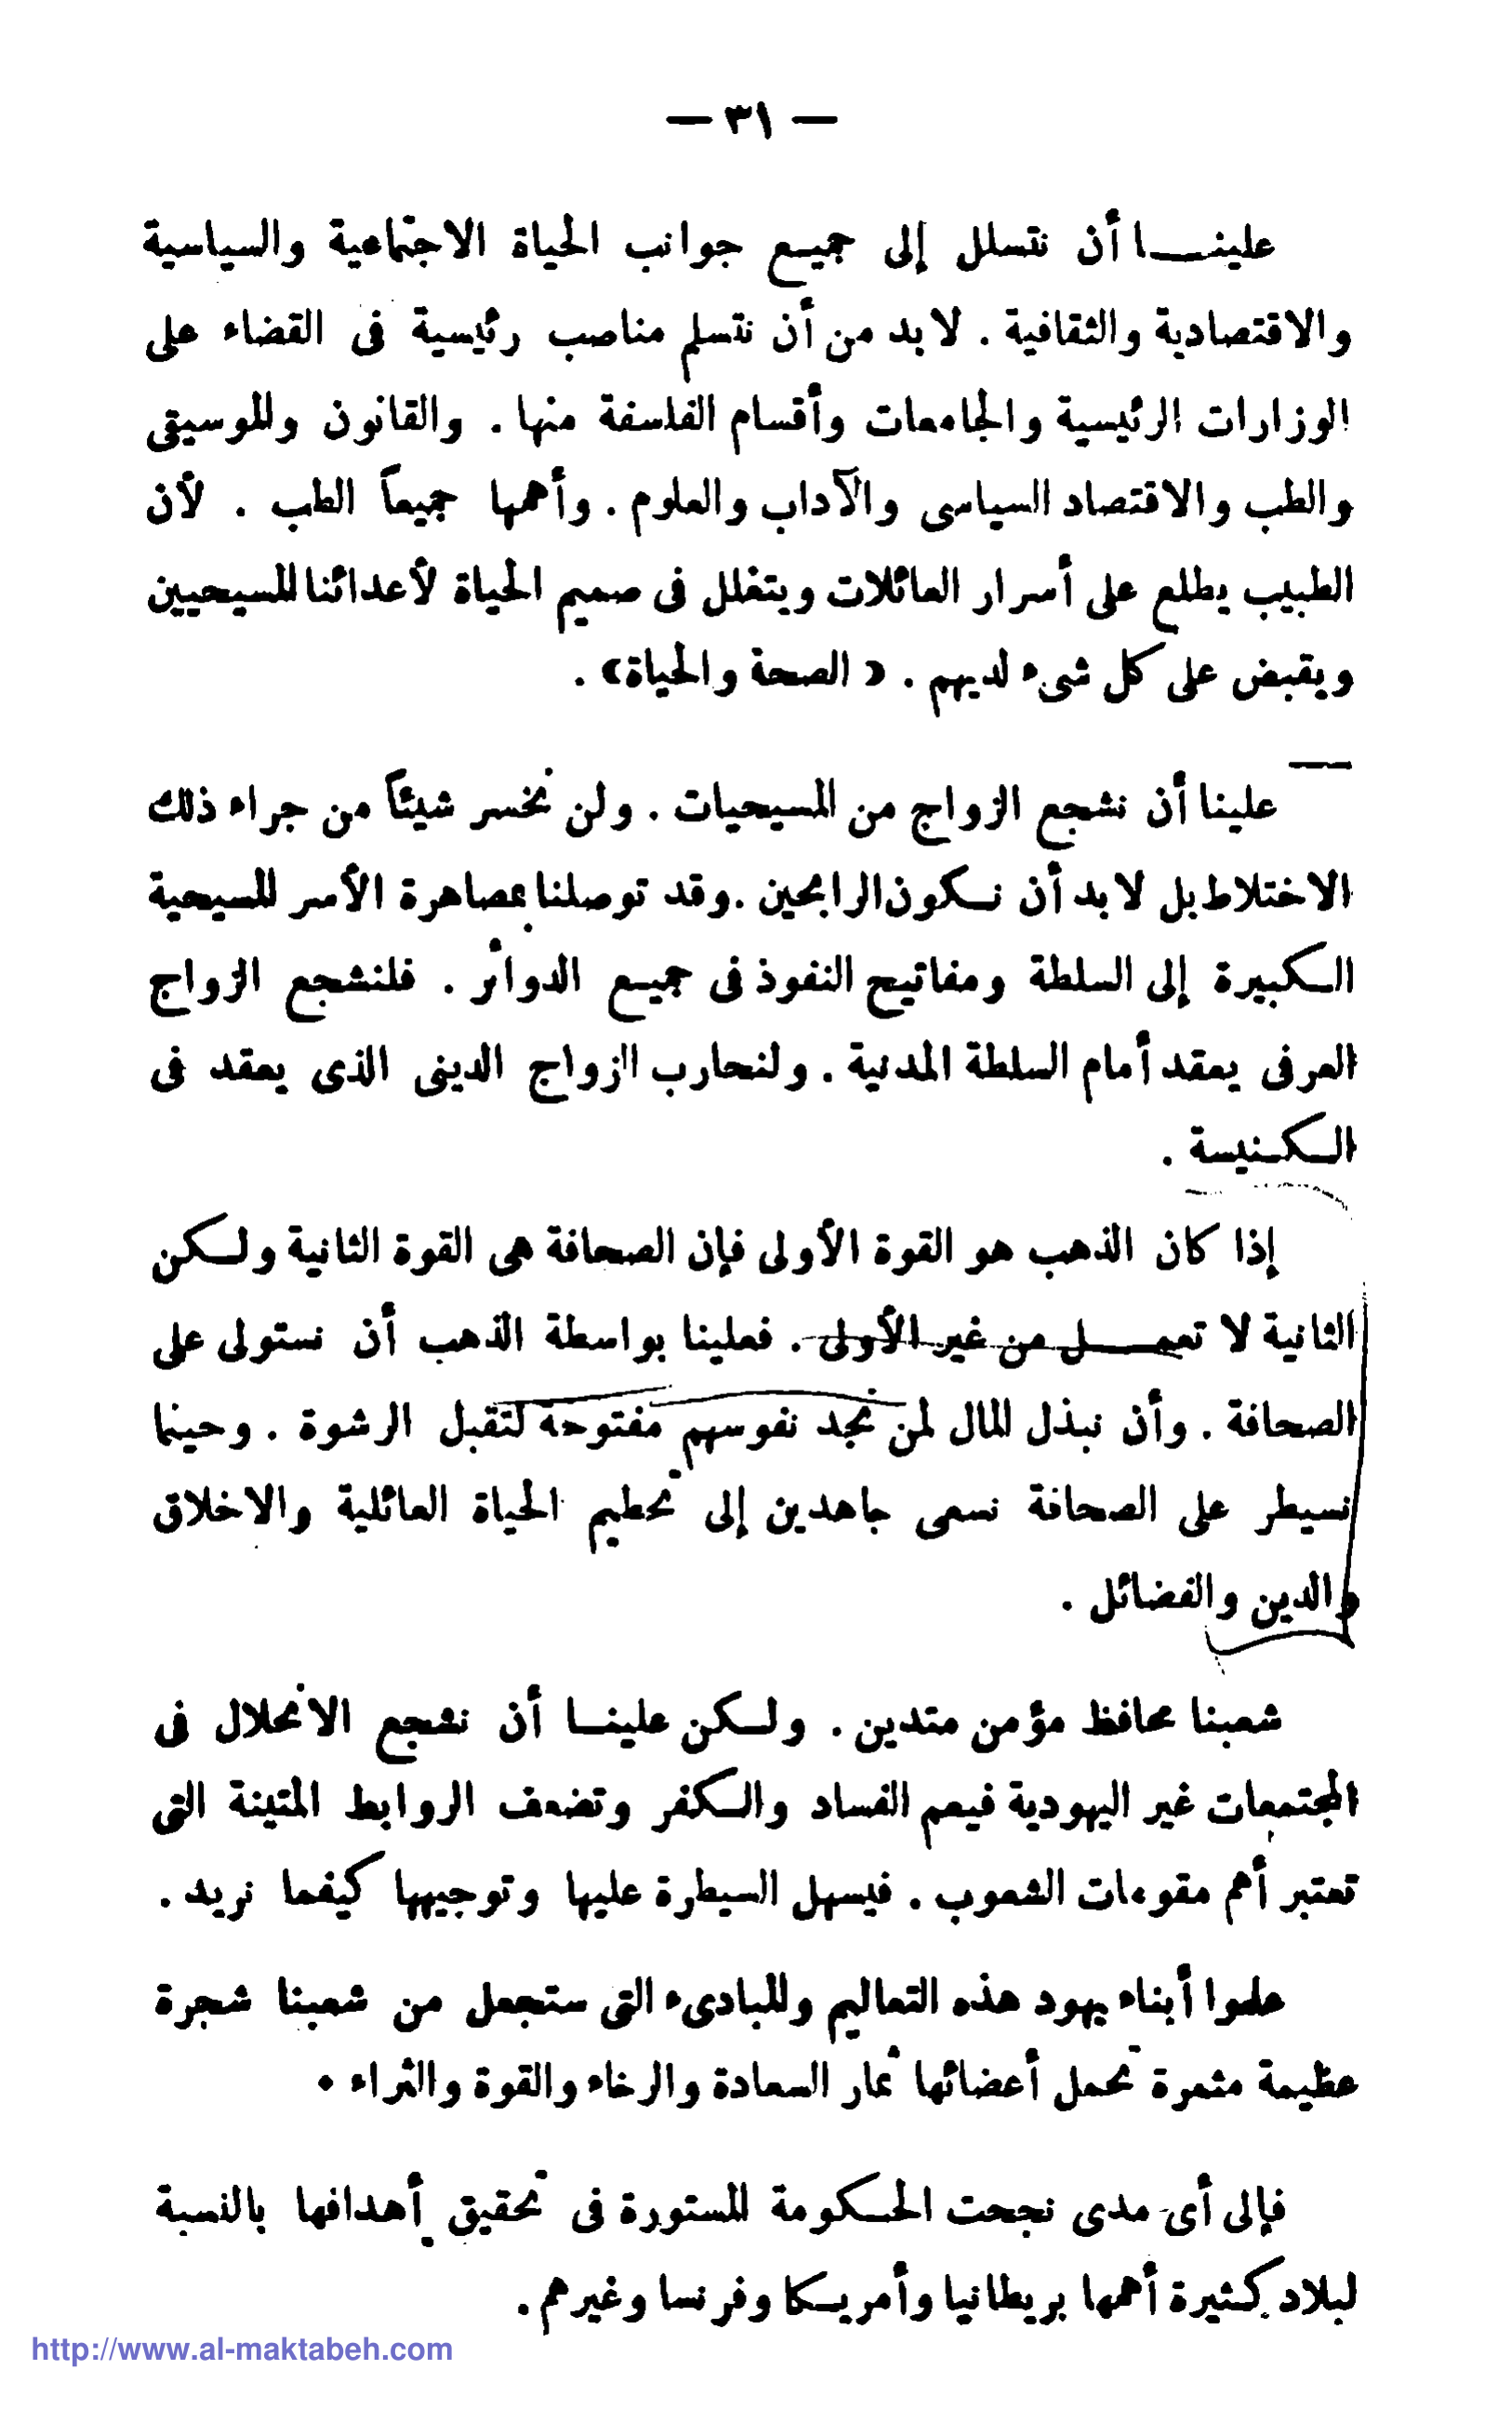 — ٣١ —
علينـــا أن نتسلل إلى جميع جوانب الحياة الاجتماعية والسياسية
والاقتصادية والثقافية . لابد من أن نتسلم مناصب رئيسية فى القضاء على
الوزارات الرئيسية والجامعات وأقسام الفلسفة منها . والقانون والموسيقى
والطب والاقتصاد السياسى والآداب والعلوم . وأهمها جميعاً الطب . لأن
الطبيب يطلع على أسرار العائلات ويتغلل فى صميم الحياة لأعدائنا المسيحيين
ويقبض على كل شىء لديهم . « الصحة والحياة» .
علينا أن نشجع الزواج من المسيحيات . ولن نخسر شيئاً من جراء ذلك
الاختلاط بل لا بد أن نكون الرابحين . وقد توصلنا بمصاهرة الأسر المسيحية
الكبيرة إلى السلطة ومفاتيح النفوذ فى جميع الدوائر . فلنشجع الزواج
العرفى يعقد أمام السلطة المدنية . ولنحارب الزواج الدينى الذى يعقد فى
الكنيسة .
إذا كان الذهب هو القوة الأولى فإن الصحافة هى القوة الثانية ولكن
الثانية لا تعمـــل من غير الأولى . فعلينا بواسطة الذهب أن نستولى على
الصحافة . وأن نبذل المال لمن نجد نفوسهم مفتوحة لتقبل الرشوة . وحينما
نسيطر على الصحافة نسعى جاهدين إلى تحطيم الحياة العائلية والاخلاق
والدين والفضائل .
شعبنا محافظ مؤمن متدين . ولكن علينــا أن نشجع الانحلال فى
المجتمعات غير اليهودية فيعم الفساد والكفر وتضعف الروابط المتينة التى
تعتبر أهم مقومات الشعوب . فيسهل السيطرة عليها وتوجيهها كيفما نريد .
علموا أبناء يهود هذه التعاليم والمبادىء التى ستجعل من شعبنا شجرة
عظيمة مثمرة تحمل أعضائها ثمار السعادة والرخاء والقوة والثراء .
فإلى أى مدى نجحت الحكومة المستورة فى تحقيق أهدافها بالنسبة
لبلاد كثيرة أهمها بريطانيا وأمريكا وفرنسا وغيرهم .
http://www.al-maktabeh.com